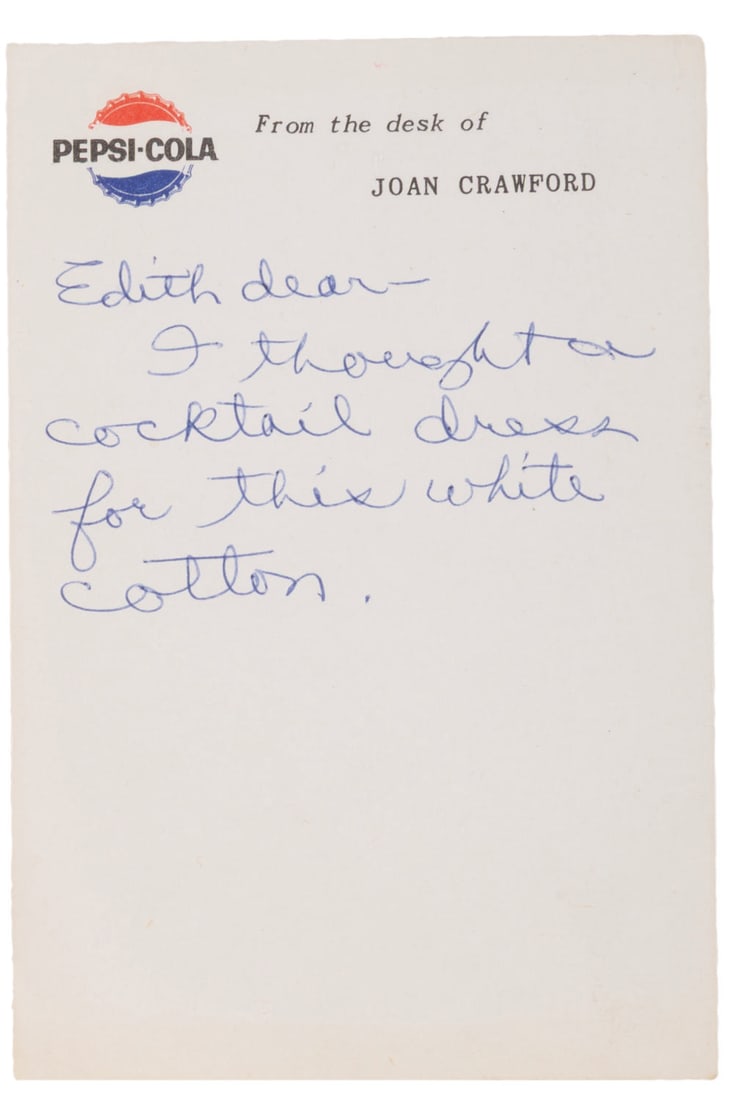 PEPSI·COLA
From the desk of
JOAN CRAWFORD
Edith dear—
I thought a
cocktail dress
for this white
cotton.